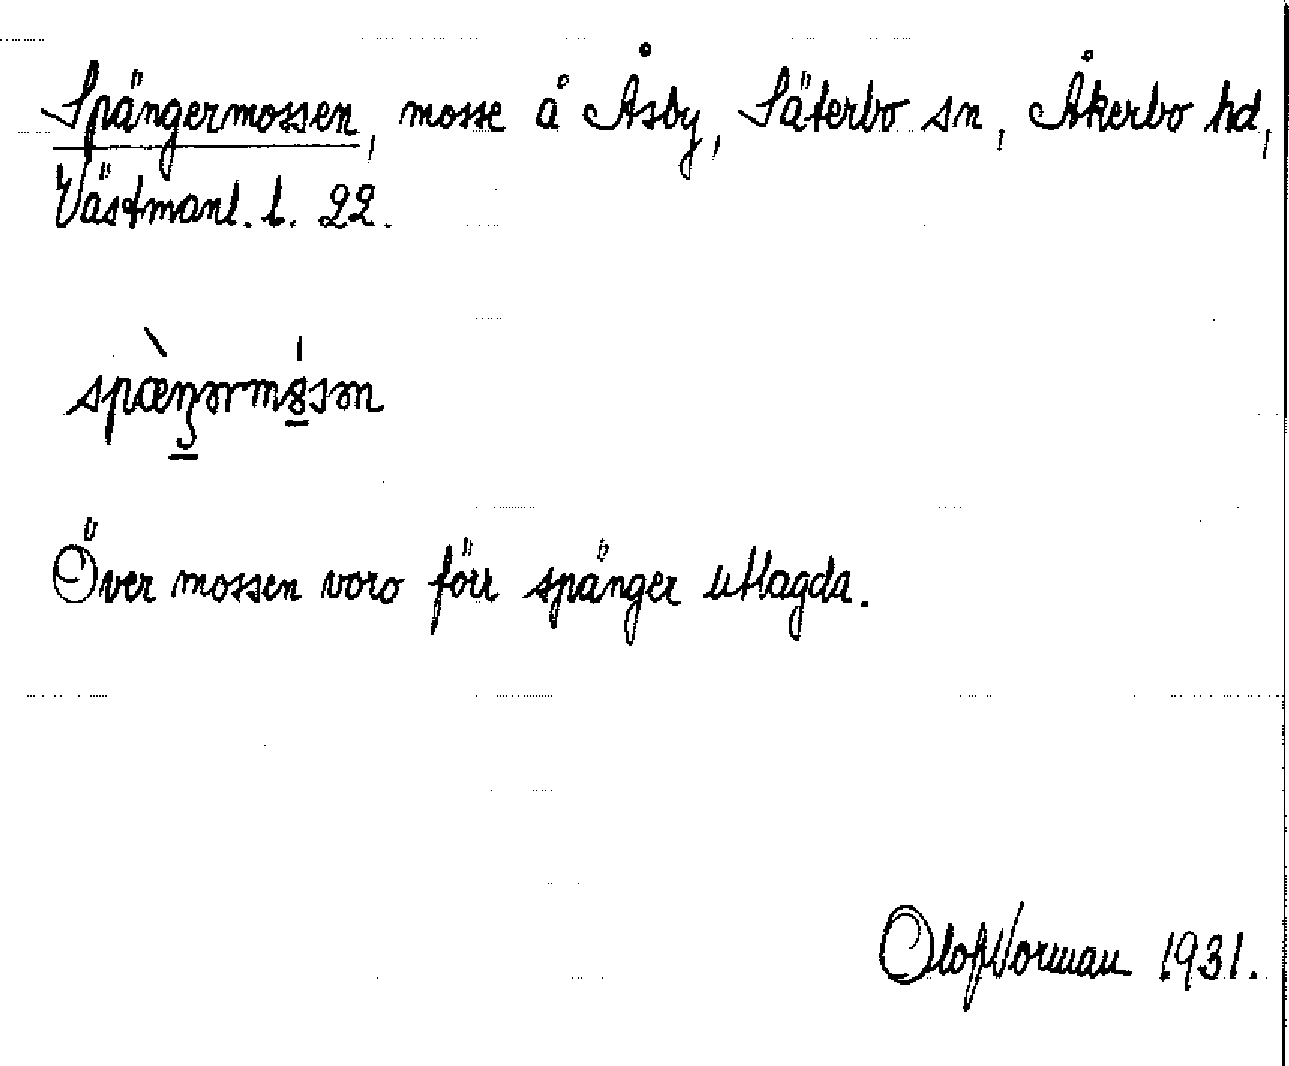 Spängermossen, mosse å Åsby, Säterbo sn, Åkerbo hd,
Västmanl. l. 22.
Över mossen voro förr spänger utlagda.
Olof Norman 1931.